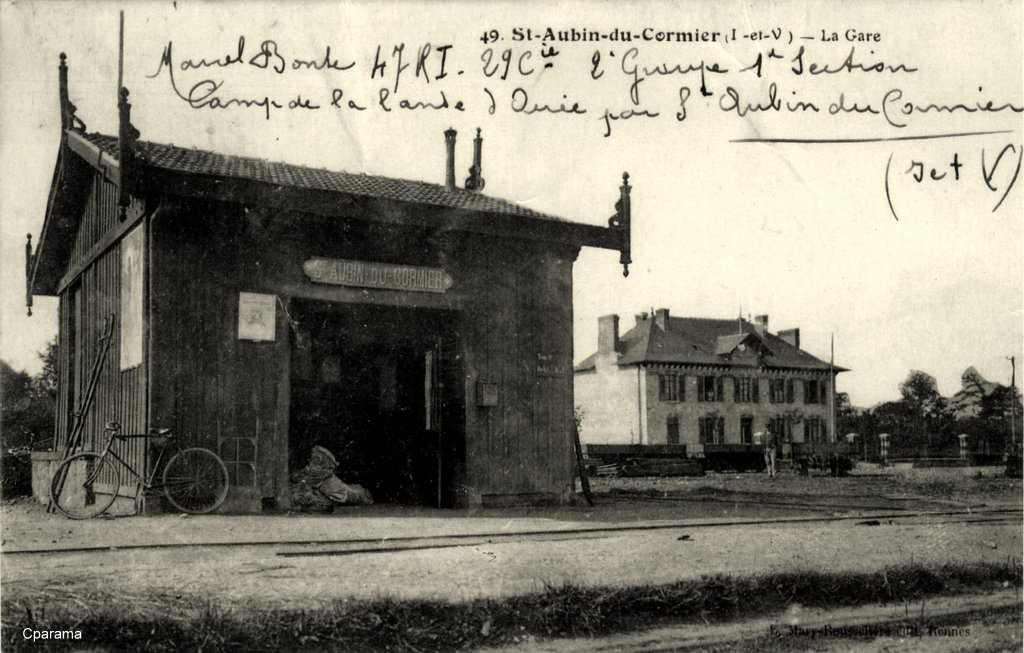 49. St-Aubin-du-Cormier (I-et-V) — La Gare
Marcel Bonte 47 RI. 29 Cie 2e Groupe 1e Section
Camp de la Lande d'Ouée par St Aubin du Cormier
(I et V)
St AUBIN-DU-CORMIER
E. Mary-Rousselière édit, Rennes
Cparama